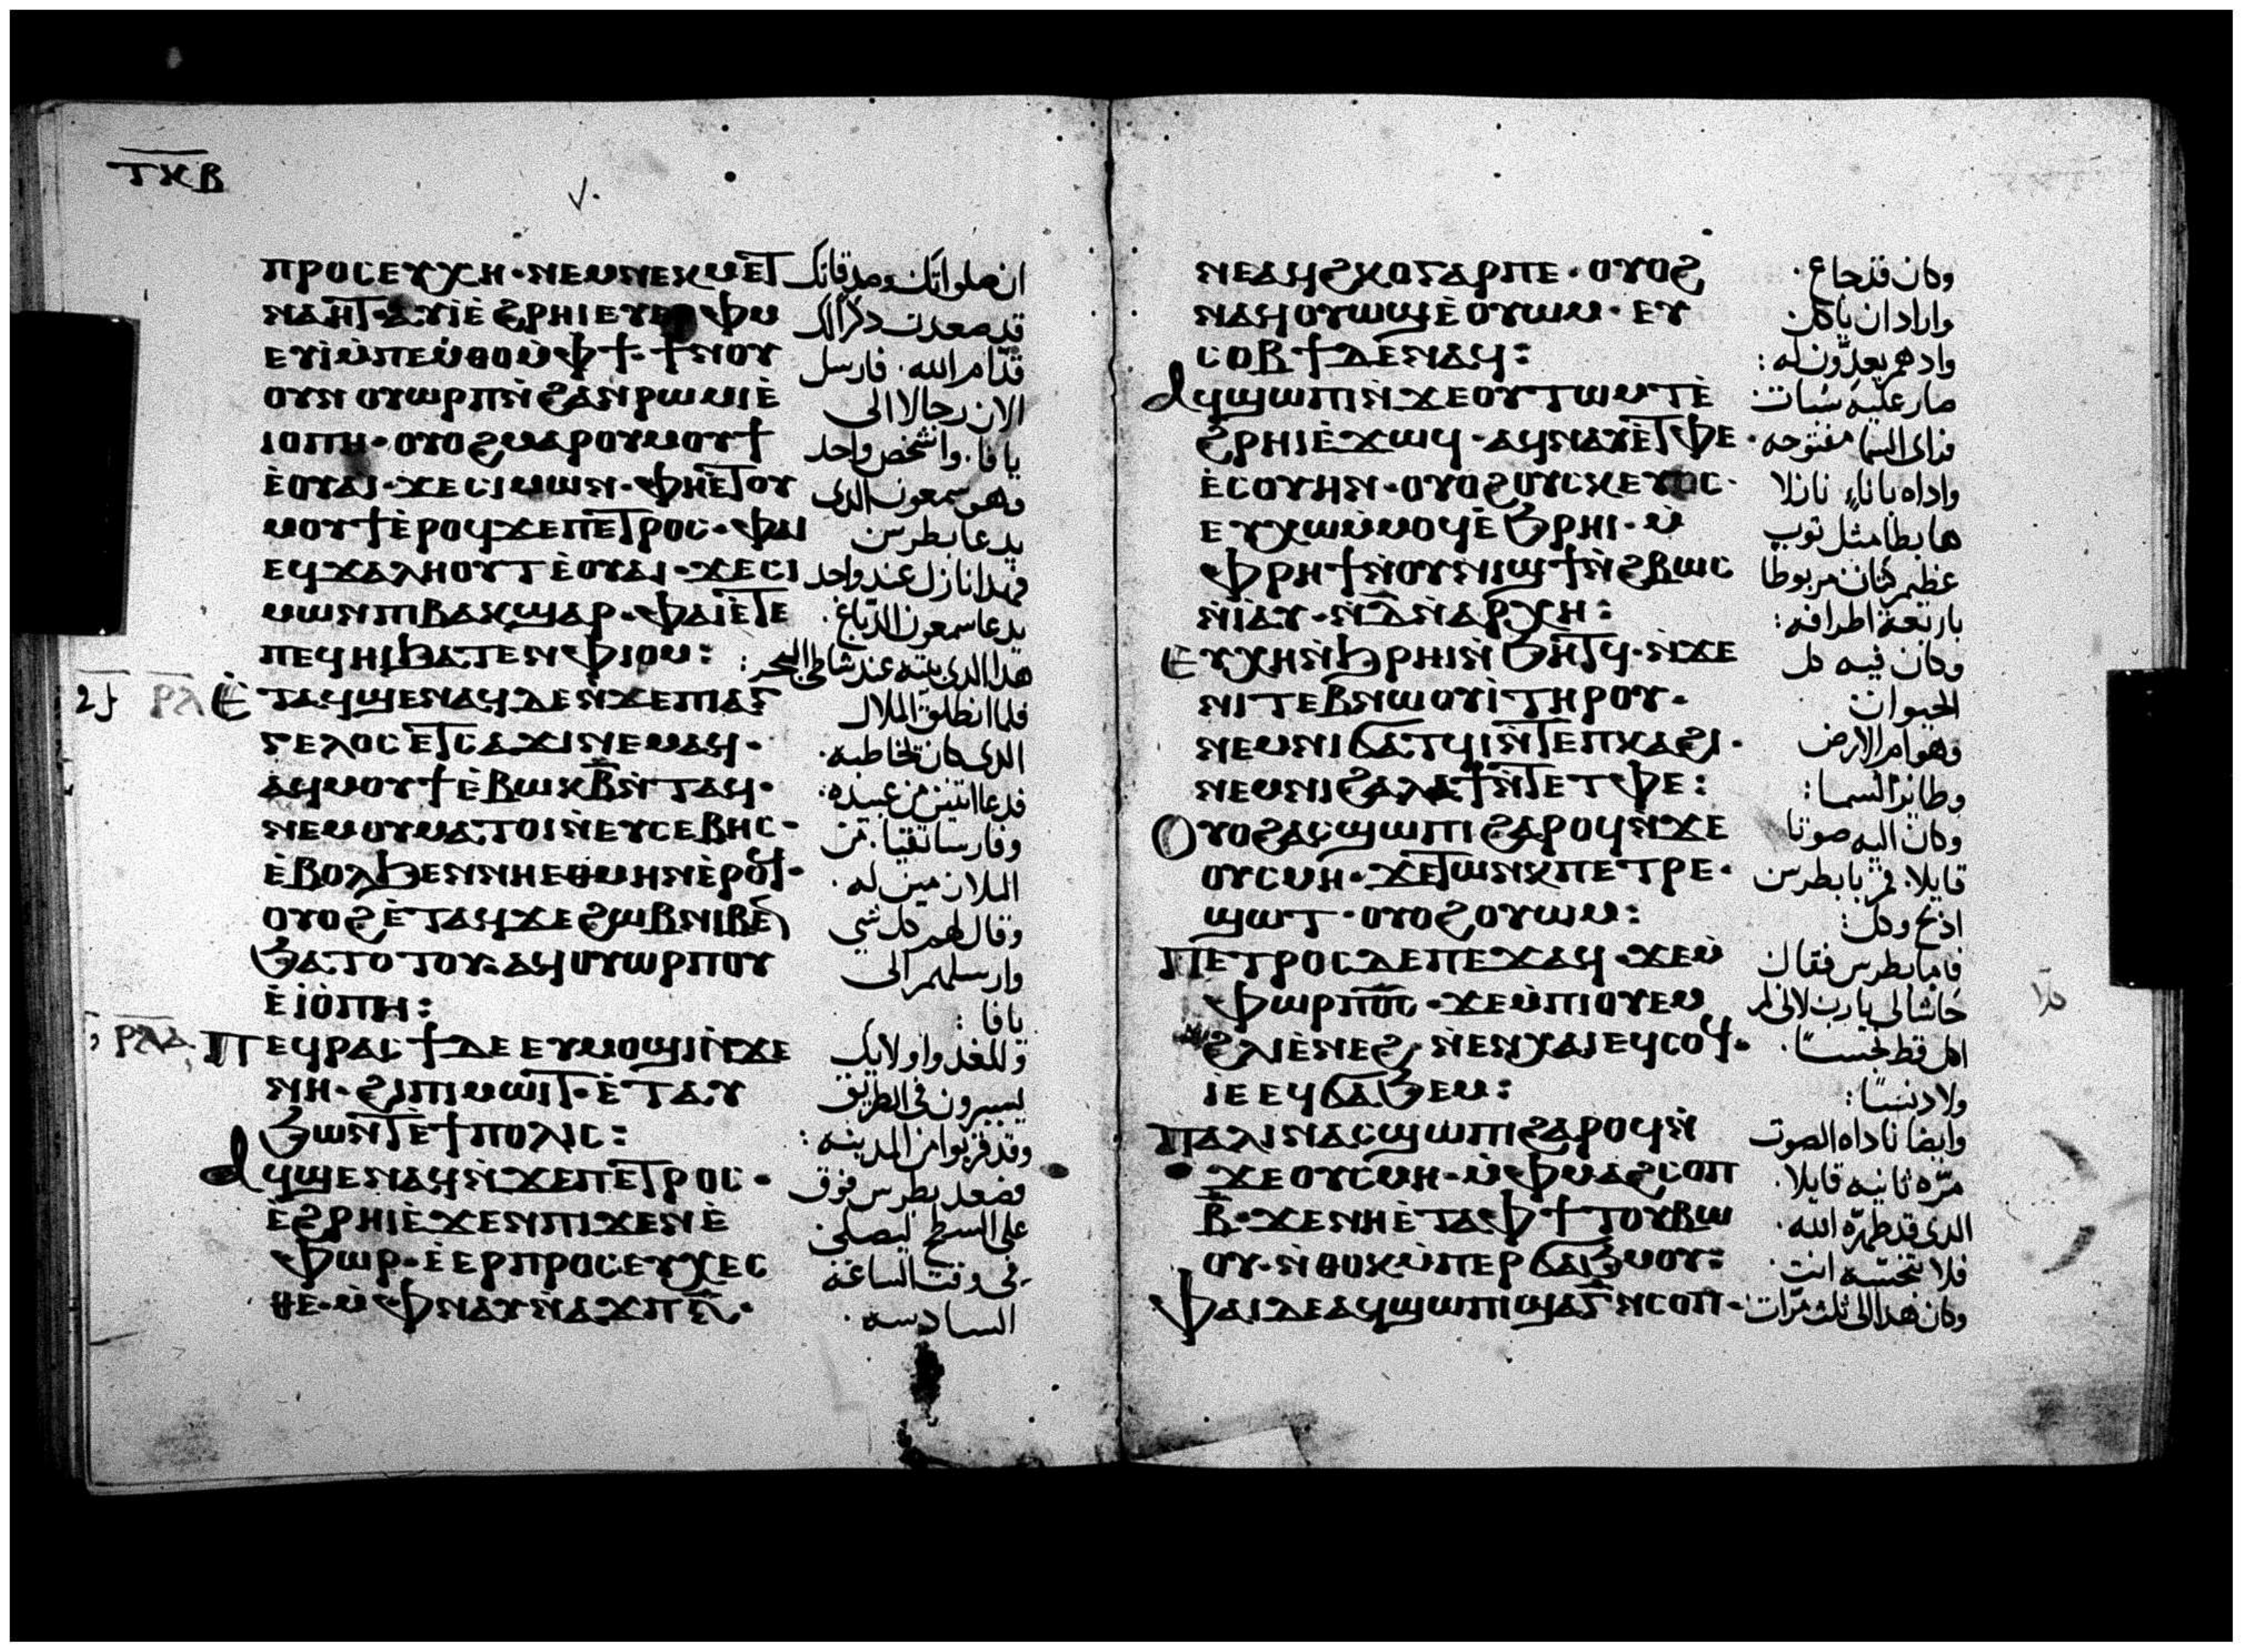 ⲧⲕⲃ
ⲡⲣⲟⲥⲉⲩⲭⲏ · ⲛⲉⲙⲛⲉⲕⲙⲉⲧ
ⲛⲁⲏⲧ · ⲁⲩⲓ̀ⲉ̀ϩⲣⲏⲓ ⲉⲩⲉⲣⲫⲙ
ⲉⲩⲓ̀ⲙ̀ⲡⲉⲙ̀ⲑⲟⲙ̀ⲫϯ · ϯⲛⲟⲩ
ⲟⲩⲛ ⲟⲩⲱⲣⲡⲛ̀ϩⲁⲛⲣⲱⲙⲓⲉ̀
ⲓⲟⲡⲏ · ⲟⲩⲟϩⲙⲁⲣⲟⲩⲙⲟⲩϯ
ⲉ̀ⲟⲩⲁⲓ · ϫⲉⲥⲓⲙⲱⲛ · ⲫⲏⲉ̀ⲧⲟⲩ
ⲙⲟⲩϯⲉ̀ⲣⲟϥϫⲉⲡⲉⲧⲣⲟⲥ · ⲫⲁⲓ
ⲉϥϫⲁⲗⲏⲟⲩⲧⲉ̀ⲟⲩⲁⲓ · ϫⲉⲥⲓ
ⲙⲱⲛⲡⲓⲃⲁⲕϣⲁⲣ · ⲫⲁⲓⲉ̀ⲧⲉ
ⲡⲉϥⲏⲓϧⲁⲧⲉⲛⲫⲓⲟⲙ :
ⲣⲗ Ⲉ̀ⲧⲁϥϣⲉⲛⲁϥⲇⲉⲛ̀ϫⲉⲡⲓⲁⲅ
ⲅⲉⲗⲟⲥⲉⲧⲥⲁϫⲓⲛⲉⲙⲁϥ ·
ⲁϥⲙⲟⲩϯⲉ̀ⲃⲱⲕⲃ̅ⲛ̀ⲧⲁϥ ·
ⲛⲉⲙⲟⲩⲙⲁⲧⲟⲓⲛ̀ⲉⲩⲥⲉⲃⲏⲥ ·
ⲉ̀ⲃⲟⲗϧⲉⲛⲛⲏⲉⲑⲙⲏⲛⲉ̀ⲣⲟϥ ·
ⲟⲩⲟϩⲉ̀ⲧⲁϥϫⲉϩⲱⲃⲛⲓⲃⲉⲛ
ϧⲁⲧⲟⲧⲟⲩ · ⲁϥⲟⲩⲱⲣⲡⲟⲩ
ⲉ̀ⲓ̀ⲟ̀ⲡⲏ :
ⲣⲗⲁ Ⲡⲉϥⲣⲁⲥϯⲇⲉⲉⲩⲙⲟϣⲓⲛ̀ϫⲉ
ⲛⲏ · ϩⲓⲡⲓⲙⲱⲓⲧ · ⲉ̀ⲧⲁⲩ
ϧⲱⲛⲧⲉ̀ϯⲡⲟⲗⲓⲥ :
Ⲁϥϣⲉⲛⲁϥⲛ̀ϫⲉⲡⲉⲧⲣⲟⲥ ·
ⲉ̀ϩⲣⲏⲓⲉ̀ϫⲉⲛⲡⲓϫⲉⲛⲉ̀
ⲫⲱⲣ · ⲉ̀ⲉⲣⲡⲣⲟⲥⲉⲩⲭⲉⲥ
ⲑⲉ · ⲙ̀ⲫⲛⲁⲩⲛ̀ⲁϫⲡ ⲋ̅ ·
ان صلواتك وصدقاتك
قد صعدت ذكرا لك
قدّام الله . فارسل
الان رجالا الى
يافا . وا شخص واحد
وهو سمعون الدى
يدعا بطرس
فهدا نازل عند واحد
يدعا سمعون الدباغ .
هدا الدى بيته عند شاطى البحر :
فلما انطلق الملاك
الدى كان يخاطبه .
فدعا اتنين من عبيده .
وفارسا تقيا . من
الملازمين له .
وقال لهم كل شي
وارسلهم الى
يافا :
وللغد واولايك
يسيرون فى الطريق
وقد قربوا من المدينه :
فصعد بطرس فوق
على السطح ليصلى
فى وقت الساعه
السادسه .
ⲛⲉⲁϥϩⲕⲟⲅⲁⲣⲡⲉ · ⲟⲩⲟϩ
ⲛⲁϥⲟⲩⲱϣⲉ̀ⲟⲩⲱⲙ · ⲉⲩ
ⲥⲟⲃϯⲇⲉⲛⲁϥ :
Ⲁϥϣⲱⲡⲓⲛ̀ϫⲉⲟⲩⲧⲱⲙⲧⲉ̀
ϩⲣⲏⲓⲉ̀ϫⲱϥ · ⲁϥⲛⲁⲩⲉ̀ⲧⲫⲉ ·
ⲉ̀ⲥⲟⲩⲏⲛ · ⲟⲩⲟϩⲟⲩⲥⲕⲉⲩⲟⲥ ·
ⲉⲩⲭⲱⲙ̀ⲙⲟϥⲉ̀ϧⲣⲏⲓ · ⲙ̀
ⲫⲣⲏϯⲛ̀ⲟⲩⲛⲓϣϯⲛ̀ϩⲃⲱⲥ
ⲛ̀ⲓⲁⲩ · ⲛ̀ⲇ̅ⲛ̀ⲁⲣⲭⲏ :
Ⲉⲩⲭⲏⲛ̀ϧⲣⲏⲓⲛ̀ϧⲏⲧϥ · ⲛ̀ϫⲉ
ⲛⲓⲧⲉⲃⲛⲱⲟⲩⲓ̀ⲧⲏⲣⲟⲩ ·
ⲛⲉⲙⲛⲓϭⲁⲧϥⲓⲛ̀ⲧⲉⲡⲕⲁϩⲓ ·
ⲛⲉⲙⲛⲓϩⲁⲗⲁϯⲛ̀ⲧⲉⲧⲫⲉ :
Ⲟⲩⲟϩⲁⲥϣⲱⲡⲓϩⲁⲣⲟϥⲛ̀ϫⲉ
ⲟⲩⲥⲙⲏ · ϫⲉⲧⲱⲛⲕⲡⲉⲧⲣⲉ ·
ϣⲱⲧ · ⲟⲩⲟϩⲟⲩⲱⲙ :
Ⲡⲉⲧⲣⲟⲥⲇⲉⲡⲉϫⲁϥ · ϫⲉⲙ̀
ⲫⲱⲣⲡ̅ⲟ̅ⲥ̅ · ϫⲉⲙ̀ⲡⲓⲟⲩⲉⲙ
ϩⲗⲓⲉ̀ⲛⲉϩ · ⲛ̀ⲉⲛⲭⲁⲓⲉϥⲥⲟϥ ·
ⲓⲉⲉϥϭⲁϧⲉⲙ :
Ⲡⲁⲗⲓⲛⲁⲥϣⲱⲡⲓϩⲁⲣⲟϥⲛ̀
ϫⲉⲟⲩⲥⲙⲏ · ⲙ̀ⲫⲙⲁϩⲥⲟⲡ
ⲃ̅ · ϫⲉⲛⲏⲉ̀ⲧⲁⲫϯⲧⲟⲩⲃⲱ
ⲟⲩ · ⲛ̀ⲑⲟⲕⲙ̀ⲡⲉⲣϭⲁϧⲙⲟⲩ :
Ⲫⲁⲓⲇⲉⲁϥϣⲱⲡⲓϣⲁⲅ̅ⲛ̀ⲥⲟⲡ ·
وكان قد جاع .
واراد ان ياكل
واد هم يعدّون له :
صار عليه سُبات .
فراى السما مفتوحه .
واداه باناءٍ نازلا
هابطا مثل توب
عظيم كتان مربوطا
باربعة اطرافه :
وكان فيه كل
الحيوان
وهوام الارض
وطاير السما :
وكان اليه صوتا
قايلا . قم يا بطرس
ادبح وكل :
فاما بطرس فقال
حاشا لى يارب لانى لم
اكل قط نجسًا .
ولا دنسًا :
وايضا ناداه الصوت
مرّه تانيه قايلا .
الدى قد طهّره الله .
فلا تنجسه انت .
وكان هدا الى تلت مرّات .